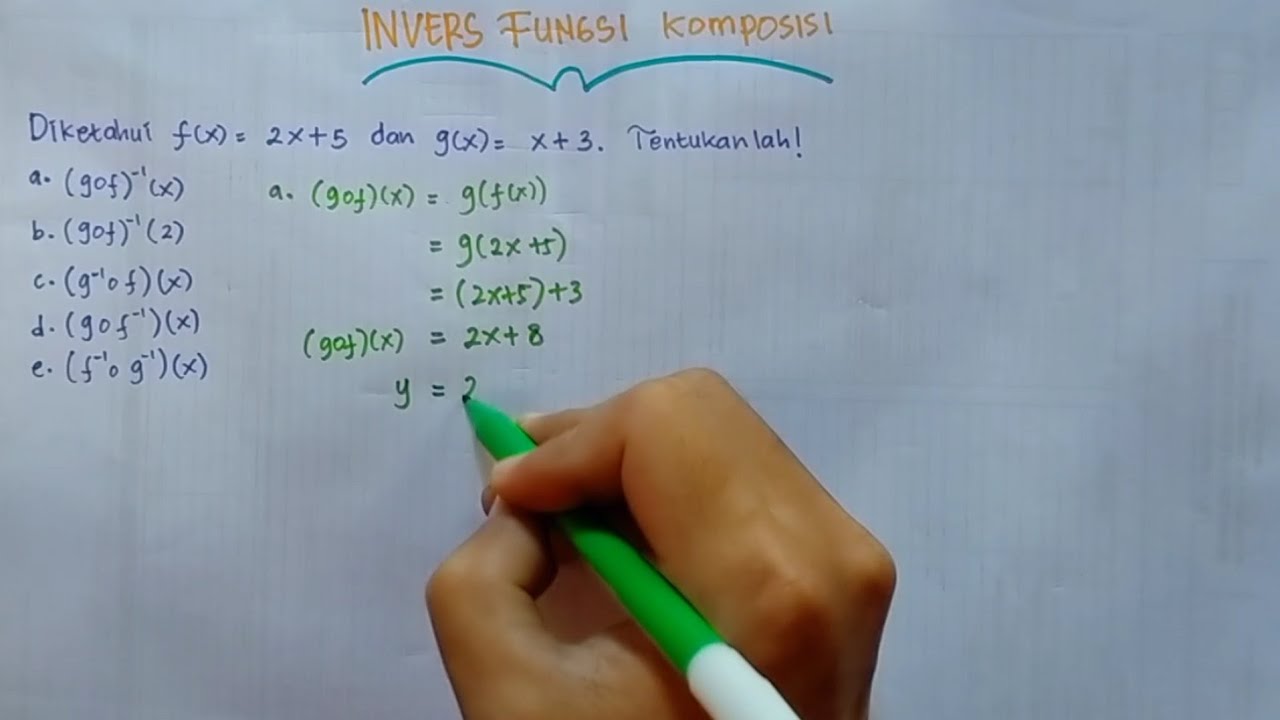 INVERS FUNGSI KOMPOSISI
Diketahui f(x) = 2x+5 dan g(x) = x+3. Tentukanlah!
a. (gof)⁻¹(x)
b. (gof)⁻¹(2)
c. (g⁻¹of)(x)
d. (gof⁻¹)(x)
e. (f⁻¹o g⁻¹)(x)
a. (gof)(x) = g(f(x))
= g(2x+5)
= (2x+5)+3
(gof)(x) = 2x+8
y = 2